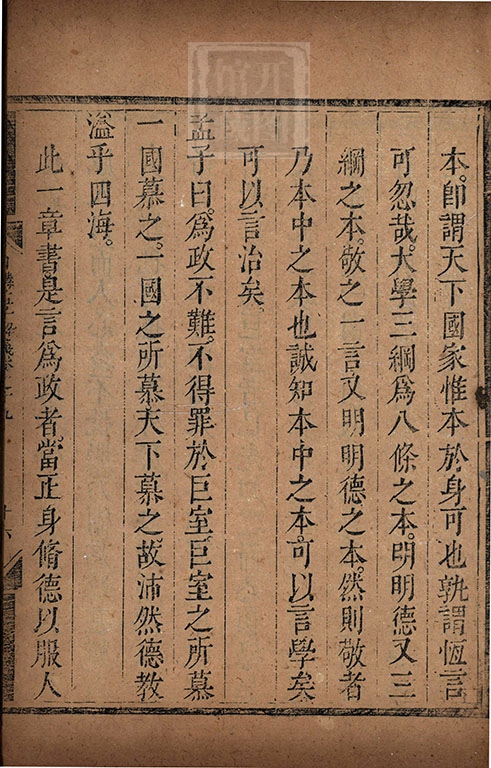 本。即謂天下國家惟本於身可也孰謂恆言
可忽哉。大學三綱爲八條之本。明明德又三
綱之本。敬之一言又明明德之本。然則敬者
乃本中之本也誠知本中之本。可以言學矣
可以言治矣
孟子曰。爲政不難。不得罪於巨室巨室之所慕
一國慕之。一國之所慕天下慕之。故沛然德教
溢乎四海。
此一章書是言爲政者。當正身脩德以服人